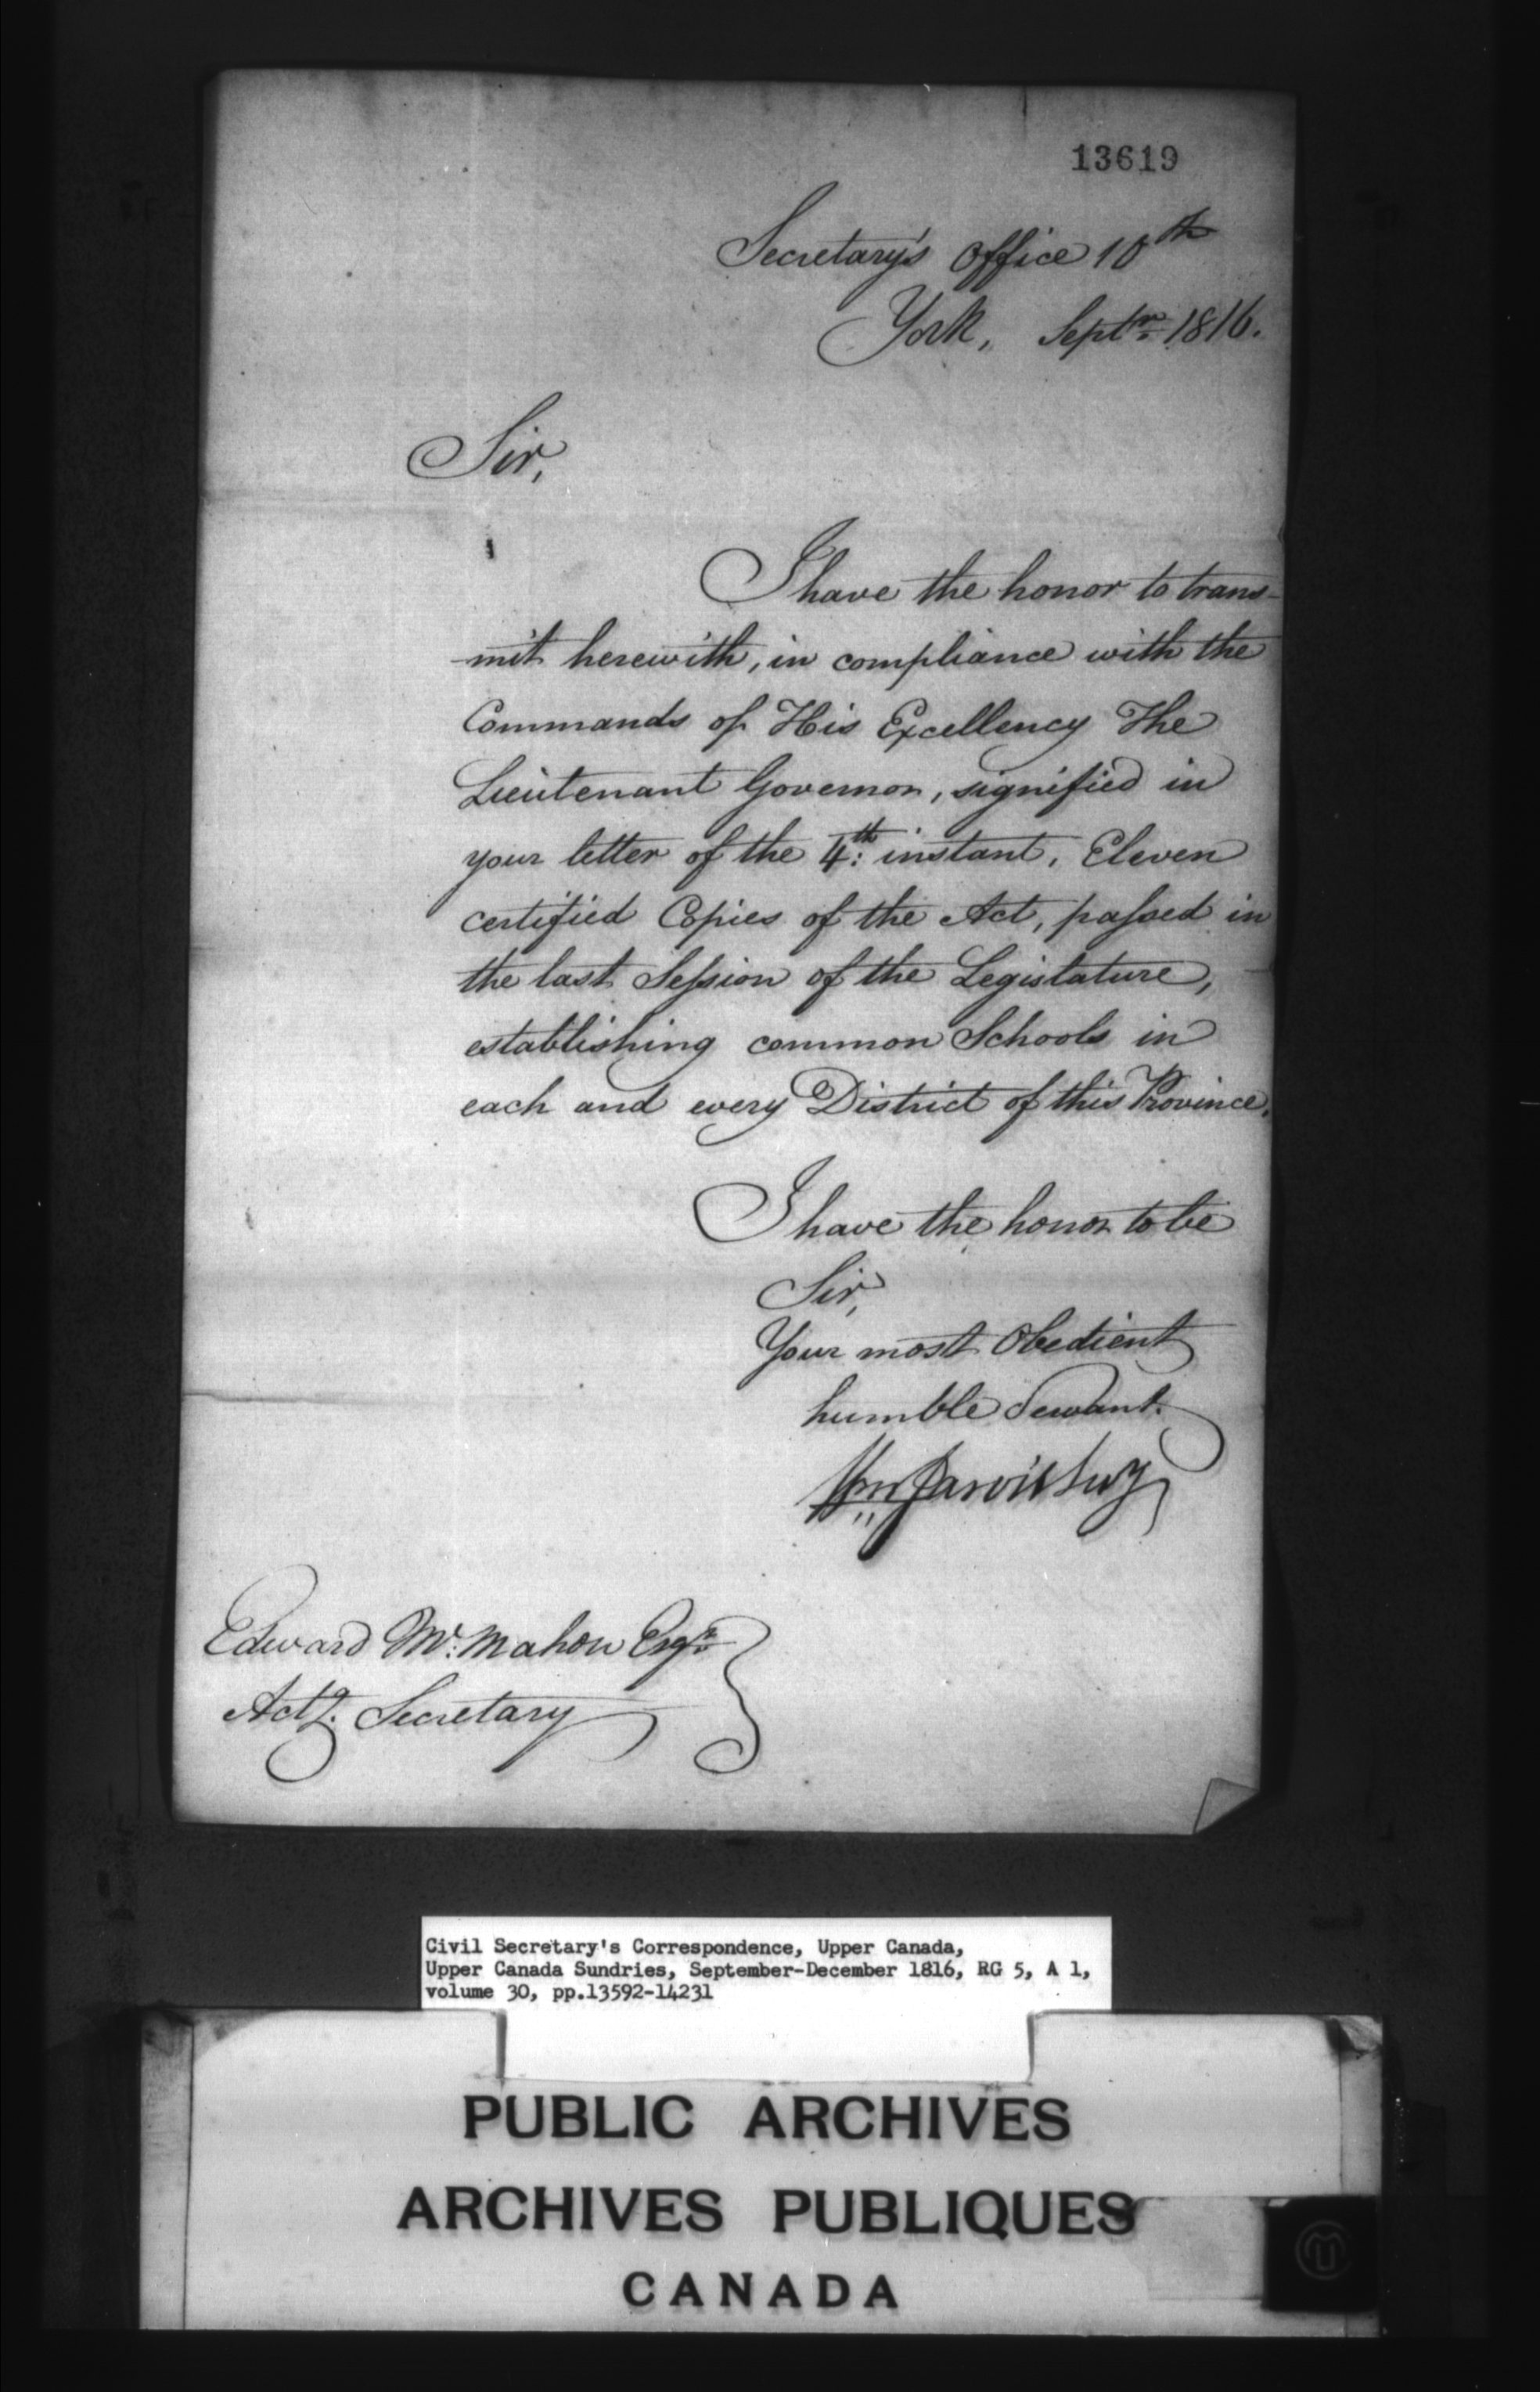 13619
Secretary's Office 10th
York, Septr. 1816.
Sir,
I have the honor to trans-
-mit herewith, in compliance with the
Commands of His Excellency The
Lieutenant Governor, signified in
your letter of the 4th: instant, Eleven
certified Copies of the Act, paſsed in
the last Seſsion of the Legislature,
establishing common Schools in
each and every District of this Province.
I have the honor to be
Sir,
Your most Obedient
humble Servant.
Wm Jarvis Secy
Edward Mc. Mahon Esqr.
Actg. Secretary
Civil Secretary's Correspondence, Upper Canada,
Upper Canada Sundries, September-December 1816, RG 5, A 1,
volume 30, pp.13592-14231
PUBLIC ARCHIVES
ARCHIVES PUBLIQUES
CANADA